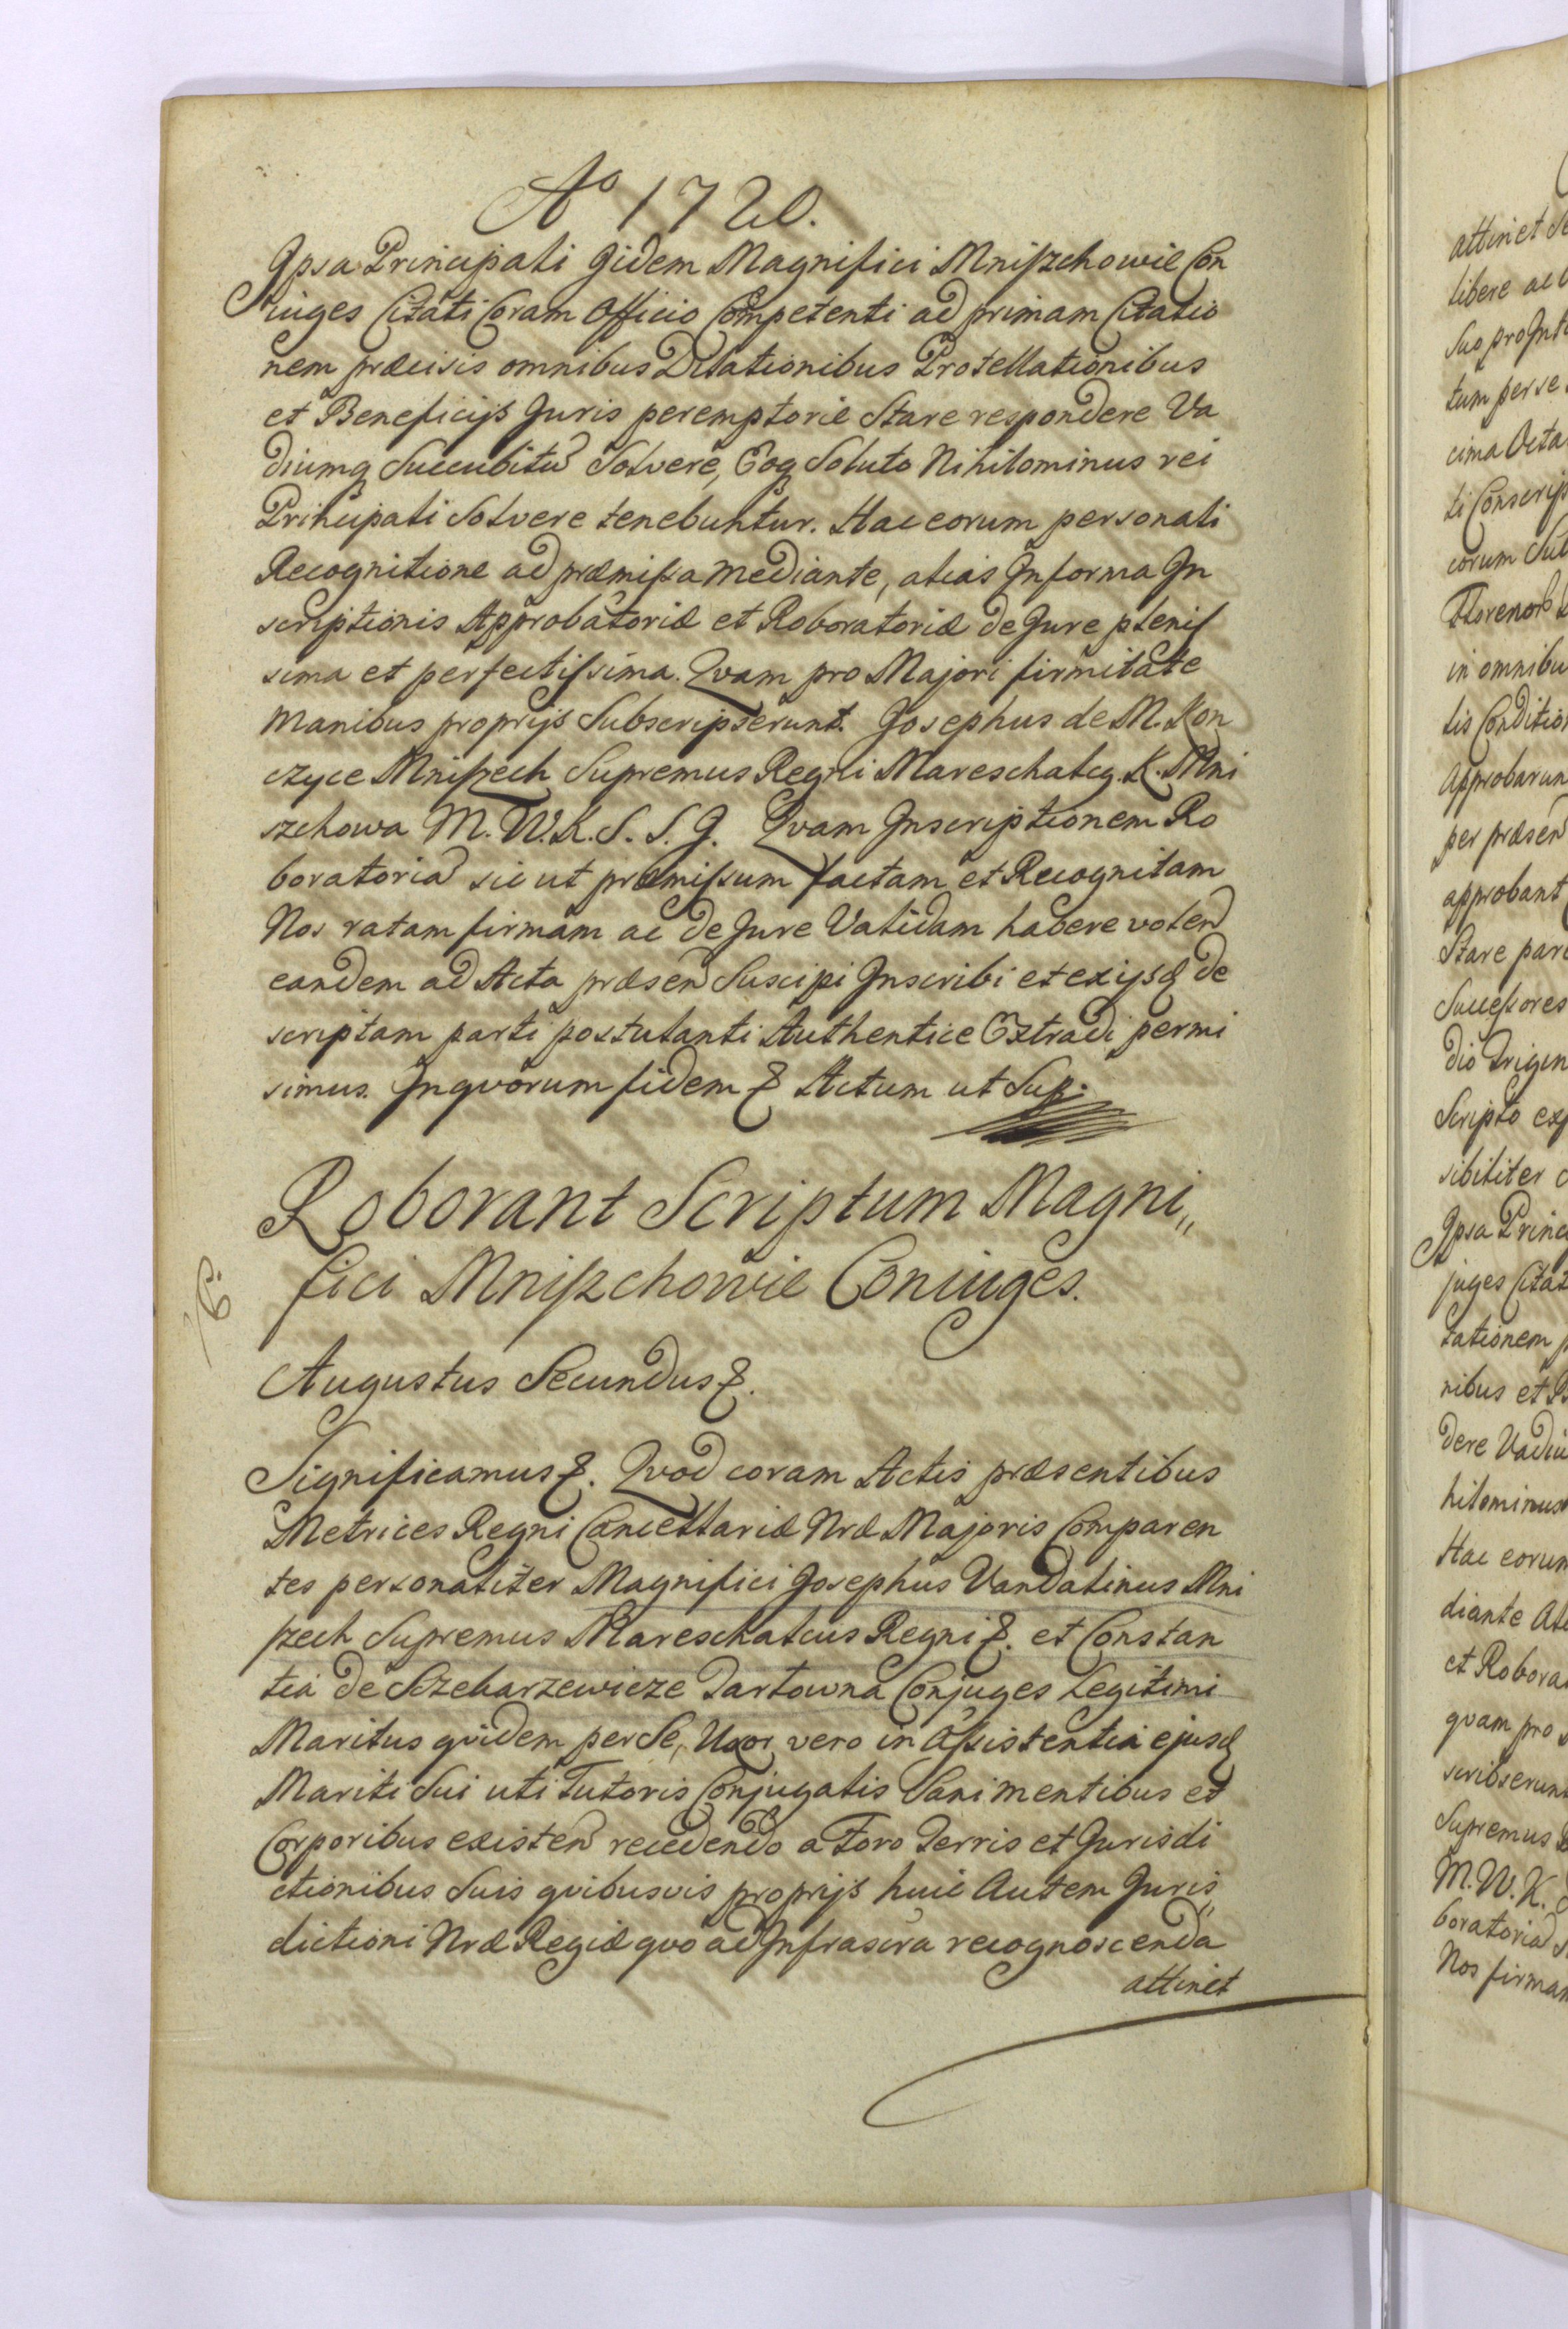 Aº 1720.
Ipsa Principali Iidem Magnifici Mniszchowie Con
iuges Citati Coram Officio Competenti ad primam Citatio
nem præcisis omnibus Dilationibus Protellationibus
et Beneficijs Juris peremptorie Stare respondere Va
diumq Succubitũ Solvere, Eoq Soluto Nihilominus rei
Principali Solvere tenebuntur. Hac eorum personali
Recognitione ad præmissa mediante, alias In forma In
scriptionis Approbatoriæ et Roboratoriæ de Jure plenis
sima et perfectissima. Qvam pro Majori firmitate
Manibus proprijs Subscripserunt. Josephus de M. Kon
czyce Mniszech Supremus Regni Mareschalcg. K. Mni
szchowa M. W. K. S. S. J. Qvam Inscriptionem Ro
boratoriã sic ut præmissum factam et Recognitam
Nos ratam firmam ac de Jure Validam habere volen
eandem ad Acta præsen Suscipi Inscribi et ex ijsd de
scriptam parti postulanti Authentice Extradi permi
simus. In qvorum fidem & Actum ut Sup:
Roborant Scriptum Magni„
fici Mniszchowie Coniuges.
Augustus Secundus &.
Significamus &. Qvod coram Actis præsentibus
Metrices Regni Cancellariæ Nræ Majoris Comparen
tes personaliter Magnifici Josephus Vandalinus Mni
szech Supremus Mareschalcus Regni &. et Constan
tia de Szebarzewicze Tartowna Conjuges Legitimi
Maritus qvidem per Se, Uxor vero in Assistentia ejusd
Mariti Sui uti Tutoris Conjugalis Sani mentibus et
Corporibus existen recedendo a Foro Terris et Jurisdi
ctionibus Suis qvibusvis proprijs huic Autem Juris„
dictioni Nræ Regiæ qvo ad Infrascra recognoscenda
attinet
attinet
libere ac
Suo pro
tum per se
cima Octa
ti Conscrip
eorum
Florenor
in omnibu
lis Conditio
Approbarun
per præsen
approbant
Stare par
Successores
dio Trigin
Scripto ex
sibiliter
Ipsa Princ
juges Citat
tationem
nibus et
dere Vadiu
hilominus
Hac eorum
diante
et Robora
qvam pro
scribserunt
Supremus
M. W. K.
boratoriã
Nos firmam